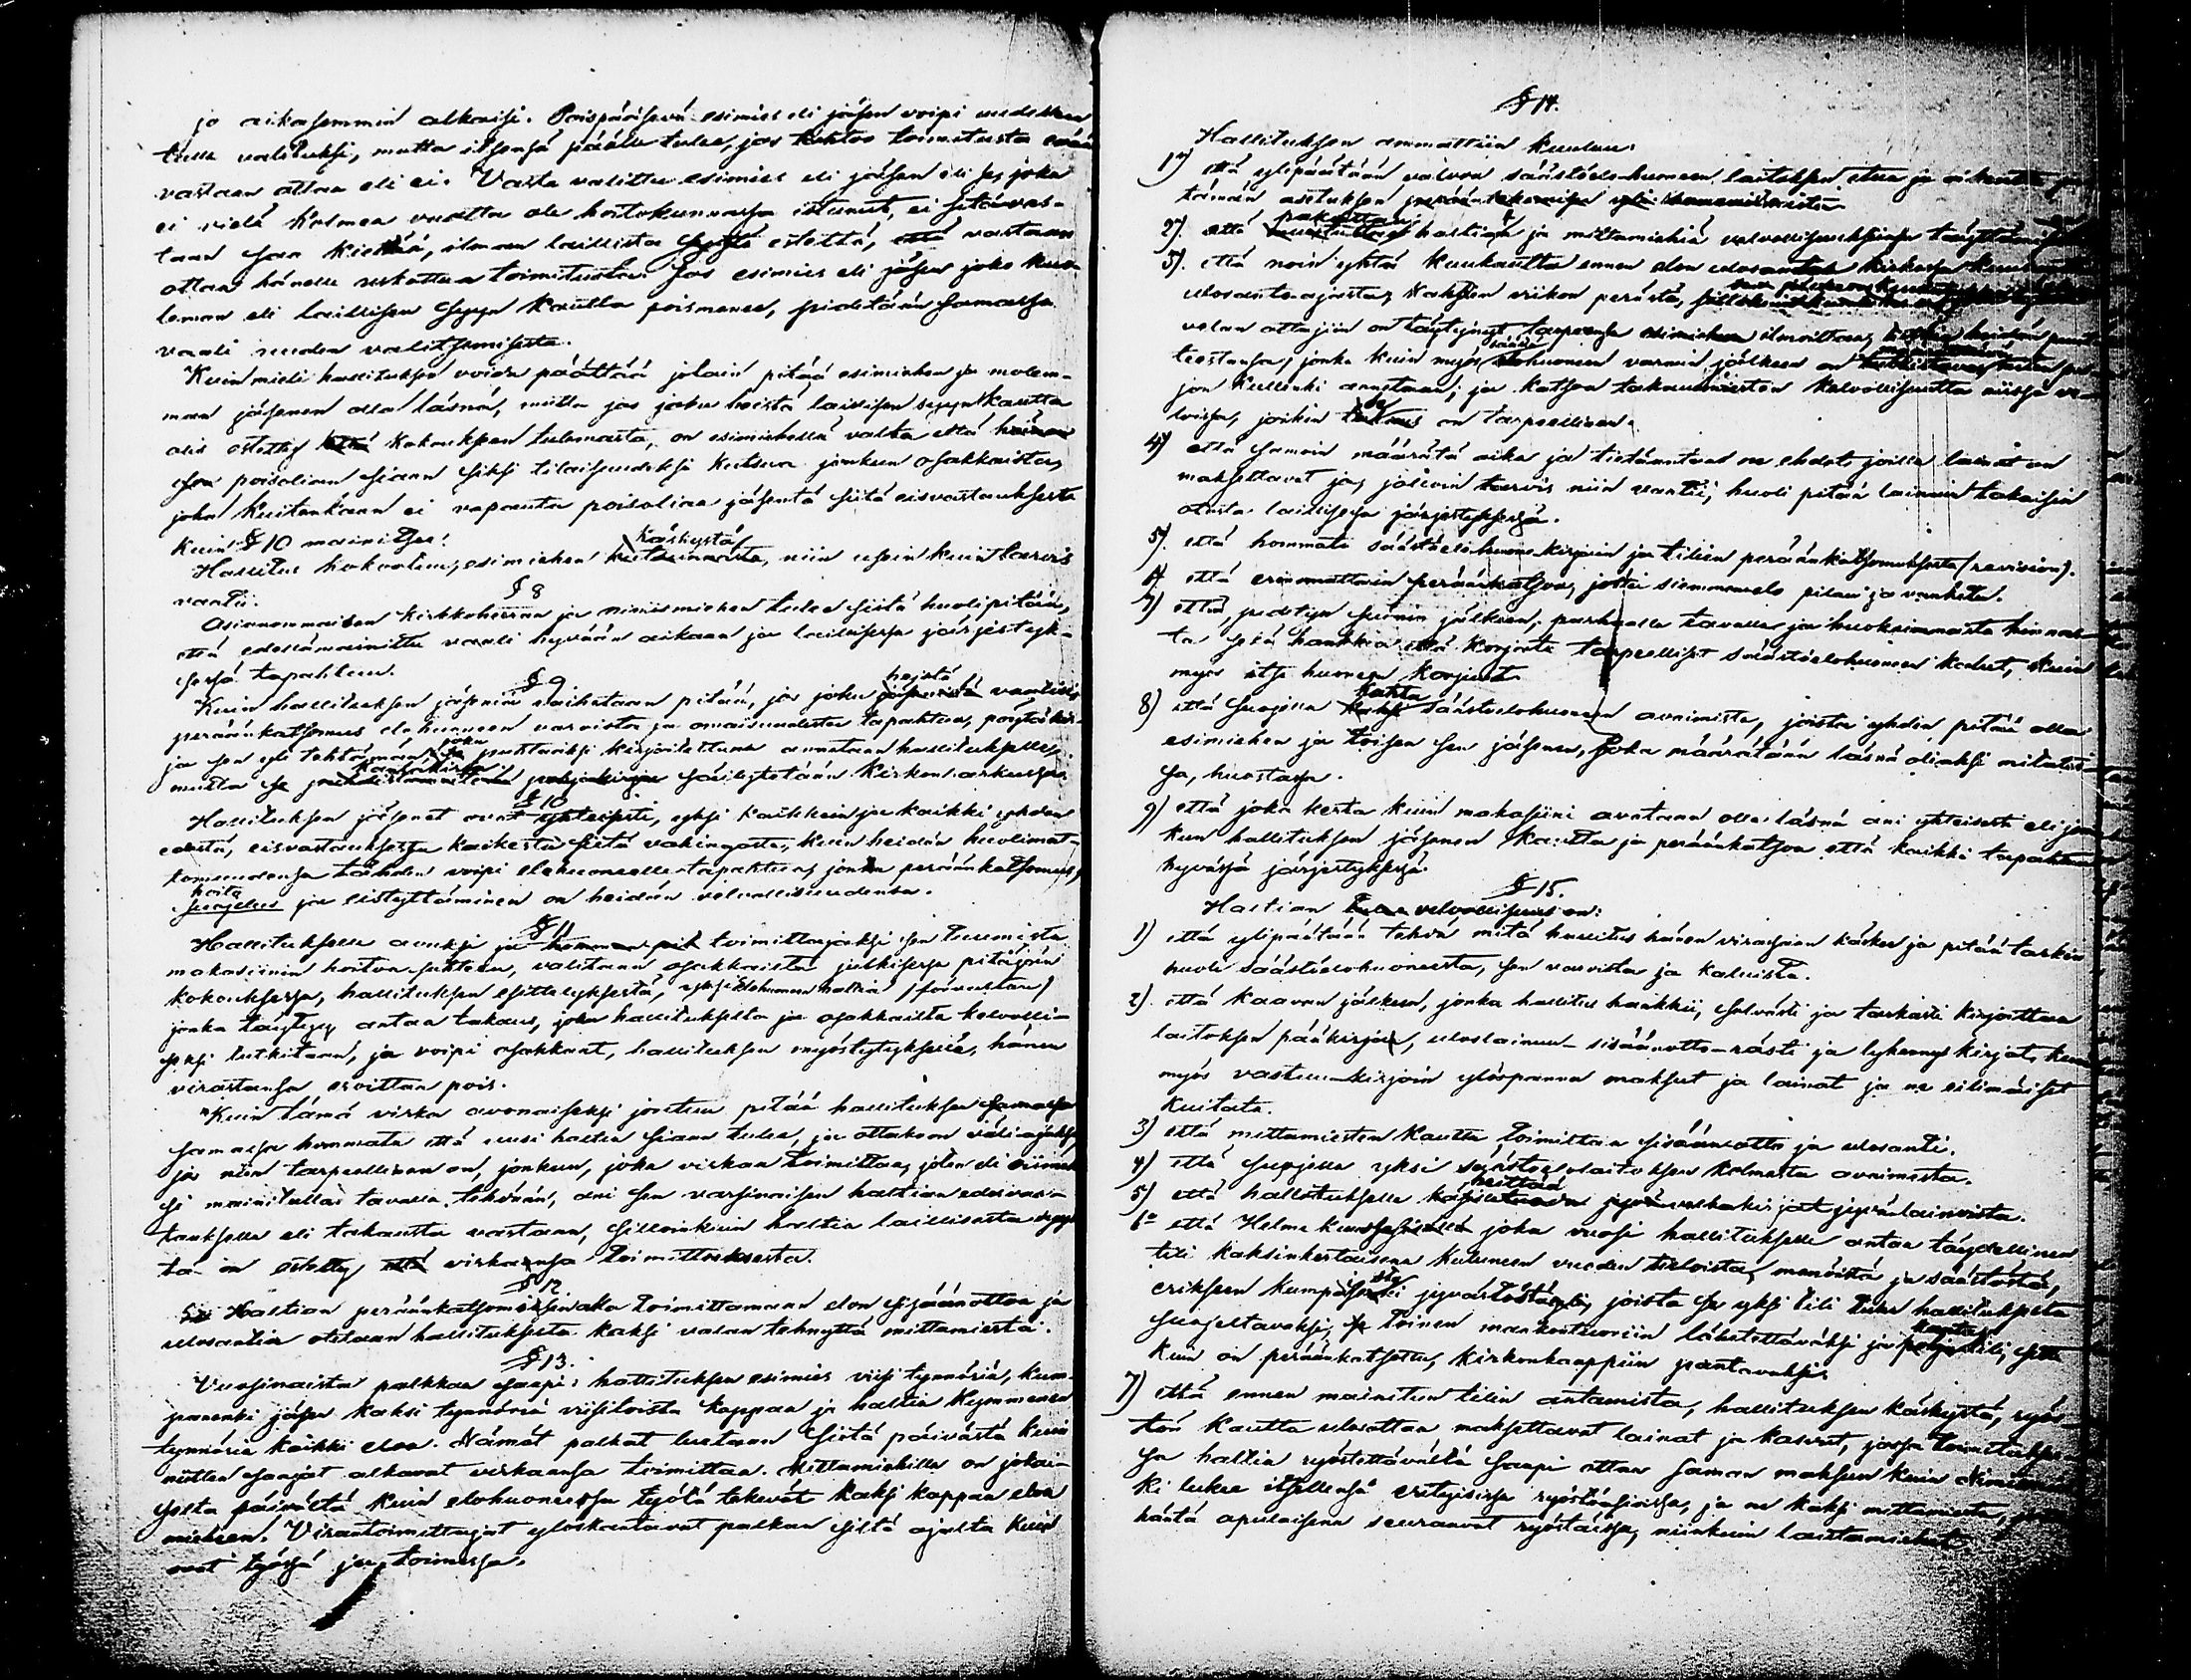 jo aikasemmin alkaisi. Poispääsevä esimies eli jäsen voipi uudelleen
tulla valituksi, mutta itsensä päälle tulee, jos tahtoo toimitusta
vastaan ottaa eli ei. Vasta valittu esimies eli jäsen eli se, joka
ei vielä kolmea vuotta ole hoitokunnassa istunut, ei sitävas-
taan saa kieltää, ilman laillista syytä estettä, vastaan
ottaa hänelle uskottua toimitusta. Jos esimies eli jäsen joko kuo-
leman eli laillisen syyn kautta poismenee, pidetään samassa
vaali uuden valitsemisesta.
Kuin mieli hallituksen voida päättää jotain pitää esimiehen ja molem-
man jäsenen olla läsnä, mutta jos joku heistä laillisen syyn kautta
olis estetty kokouksen tulemasta, on esimiehellä valta että
saa poisolian siaan siksi tilaisuudeksi kutsua jonkun osakkaista,
joka kuitenkaan ei vapauta poisoliaa jäsentä siitä eisvastauksesta
kuin § 10 mainitsee.
Hallitus kokoontuu, esimiehen käskystä, niin usein kuin tarvis
vaatii.
§ 8
Asianomaisen Kirkkoherran ja nimismiehen tulee siitä huolipitää,
että edellämainittu vaali hyvään aikaan ja laillisessa järjestyk-
sessä tapahtuu.
§ 9
Kuin hallituksen jäseniä vaihetaan pitää, jos joku heistä vaatisi,
peräänkatsomus elohuoneen varoista ja omaisuudesta tapahtua, pöytäkir-
ja sen yli tehtämän, joku puhtaaksi kirjoitettuna annetaan hallitukselle,
mutta se kantakirja säilytetään Kirkon arkussa.
§ 10
Hallituksen jäsenet ovat yhteisesti, yksi kaikkein ja kaikki yhden
edestä, eisvastauksessa kaikesta siitä vahingosta, kuin heidän huolimat-
tomuudensa tähden voipi elohuoneelle tapahtua, jonka peräänkatsomus,
hoito ja eistyttäminen on heidän velvollisuudensa.
§ 11
Hallitukselle avuksi ja toimittajaksi sen
makasiinin hoitoa suhteen, valitaan osakkaista julkisessa pitäjän
kokouksessa, hallituksen esittelyksestä, yksi Elohuoneen haltia (förvaltare)
jonka täytyy antaa takaus, joka hallitukselta ja osakkailta kelvolli-
seksi tutkitaan, ja voipi osakkaat, hallituksen myöstytyksellä, hänen
virastansa eroittaa pois.
Kuin tämä virka avonaiseksi joutuu pitää hallituksen
samassa hommata että uusi haltia siaan tulee, ja ottakoon väliajaksi,
jos niin tarpeellinen on, jonkun, joka virkaa toimittaa, joten eli
si mainitulla tavalla tehdään, ani sen varsinaisen haltian edesvas-
tauksella eli takausta vastaan, silloinkuin haltia laillisesta syys-
tä on estetty virkaansa toimittamasta.
§ 12
Haltian peräänkatsomisen alla toimittamaan elon sisäänottoa ja
ulosantia otetaan hallitukselta kaksi valan tehnyttä mittamiestä.
§ 13.
Vuosinaista palkkaa saapi: hallituksen esimies viisi tynnöriä, kum-
panenki jäsen kaksi tynnöriä viisitoista kappaa ja haltia kymmenen
tynnöriä kaikki eloa. Nämät palkat luetaan siitä päivästä kuin
niitten saajat alkavat virkaansa toimittaa. Mittamiehille on jokai-
selta päivältä kuin elohuoneessa työtä tekevät kaksi kappaa eloa
mieheen. Virantoimittajat yloskantavat palkan siltä ajalta kuin
ovat työssä ja toimessa.
§ 14.
Hallituksen ammattiin kuuluu:
1o) että ylipäätään valvoa säästöelo-huoneen laitoksen etua ja oikeutta
tämän asetuksen
2o). että pakottaa haltiaa ja mittamiehiä velvollisuuksiansa täyttämään
3). että noin yhtä kuukautta ennen elon ulosantoa kirkossa
ulosanto-ajasta, kahden viikon perästä,
velan ottajiin on täytynyt tarpeensa ilmoittaa,
teestansa, jonka kuin myös elohuoneen varain jälkeen on
jon kullenki annetaan; ja katsoa takausmiesten kelvollisuutta niissä
loissa, joihin takaus on tarpeellinen.
4) että samoin määrätä aika ja tietäantaa ne ehdot joilla lainat on
maksettavat ja, jolloin tarvis niin vaatii, huoli pitää lainain takaisin
otosta laillisessa järjestyksessä.
5). että hommata säästöelohuone kirjain ja tilien peräänkatsomuksesta (revision).
6). että erinomattain peräänkatsoa, jottei siemenvelo pilau ja vanhetu.
7) että, sunin jälkeen, parhaalla tavalla ja huokeimmasta hinnas-
ta sekä hankkia että korjata tarpeelliset säästöelohuoneen kalut, kuin
myös itse huoneen korjuut.
8) että suojella kahta säästöelohuoneen avaimista, joista yhden pitää olla
esimiehen ja toisen sen jäsenen, joka määrätään läsnä oliaksi
sa, huostassa.
9) että joka kerta kuin makasiini avataan olla läsnä ani yhteisesti eli jon-
kun hallituksen jäsenen kautta ja peräänkatsoa että kaikki tapahtuu
hyvässä järjestyksessä.
§ 15.
Haltian velvollisuus on:
1) että ylipäätään tehdä mitä hallitus hänen virassaan käskee ja pitää tarkin
huoli säästöelohuoneesta, sen varoista ja kaluista.
2). että kaavan jälkeen, jonka hallitus hankkii, selvästi ja tarkasti kirjoittaa
laitoksen pääkirjan, uloslainuu- sisäänotto-rästi ja lyhennys kirjat, kuin
myös vastuu-kirjoin ylöspanna maksut ja lainat ja ne eilimäiset
kuitata.
3) että mittamiesten kautta toimittaa sisäänotto ja ulosanti.
4) että suojella yksi säästöelolaitoksen kolmesta avaimesta.
5) että hallitukselle heittää jyvälainoista.
6o että Helme kuussa joka vuosi hallitukselle antaa täydellinen
tili kaksinkertaisena kuluneen vuoden tuloista, menoista ja säästöstä,
erikseen kumpasestki jyvästöstä, joista se yksi tili tulee hallitukselta
suojeltavaksi, se toinen maankonttooriin lähetettäväksi ja
kuin on peräänkatsottu, kirkonkaappiin pantavaksi.
7) että ennen mainitun tilin antamista, hallituksen käskystä, ryös-
tön kautta ulosottaa maksettavat lainat ja kasvut, jossa
sa haltia ryöstettävältä saapi ottaa saman maksun kuin
ki lukee itsellensä erityisissä ryöstöasioissa, ja ne kaksi mittamiestä,
häntä apulaisena seuraavat ryöstäissä, niinkuin lautamiehet